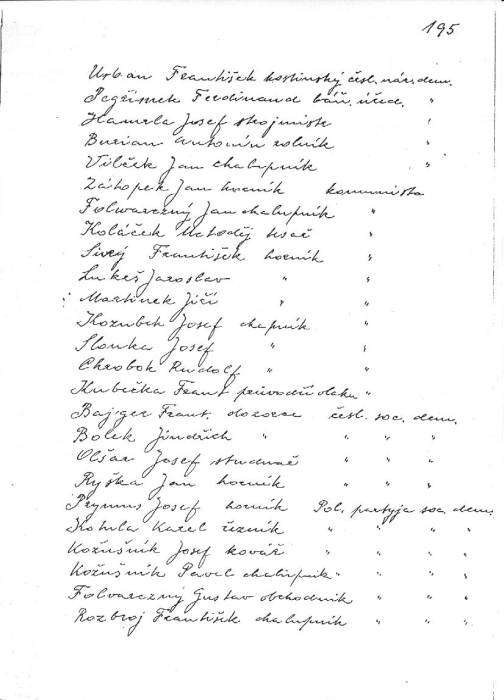 195
Urban František hostinský čsl. nár. dem.
Ferdinand báň. úřed. "
Hamrla Josef strojmistr "
Burian Antonín rolník "
Vilček Jan chalupník "
Zátopek Jan horník komunista
Folwarczný Jan chalupník "
Koláček Metoděj tesař "
Sivý František horník "
Lukeš Jaroslav " "
Martinek Jiří " "
Kozubek Josef chalupník "
Slonka Josef " "
Chrobok Rudolf " "
Kubečka Frant průvodčí vlaku "
Bajger Frant. dozorce čsl. soc. dem.
Bolek Jindřich " " " "
Olšar Josef studnař " " "
Ryška Jan horník " " "
Prymus Josef horník Pol. partyja soc. dem.
Kotula Karel řezník " " "
Kožušník Josef kovář " " "
Kožušník Pavel chalupník " " " "
Folvarczný Gustav obchodník " " "
Rozbroj František chalupník " " "